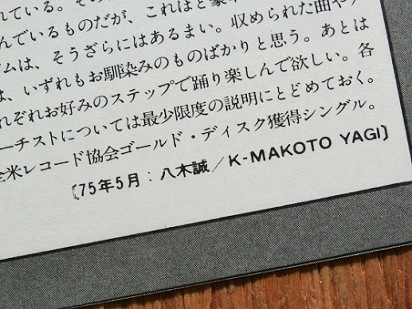 れている。その
んでいるものだが、これほど豪
ムは、そうざらにはあるまい。収められた曲やア
は、いずれもお馴染みのものばかりと思う。あとは
れぞれお好みのステップで踊り楽しんで欲しい。各
ーチストについては最少限度の説明にとどめておく。
全米レコード協会ゴールド・ディスク獲得シングル。
〔75年5月：八木誠／K-MAKOTO YAGI〕